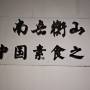 南岳衡山
中国素食之